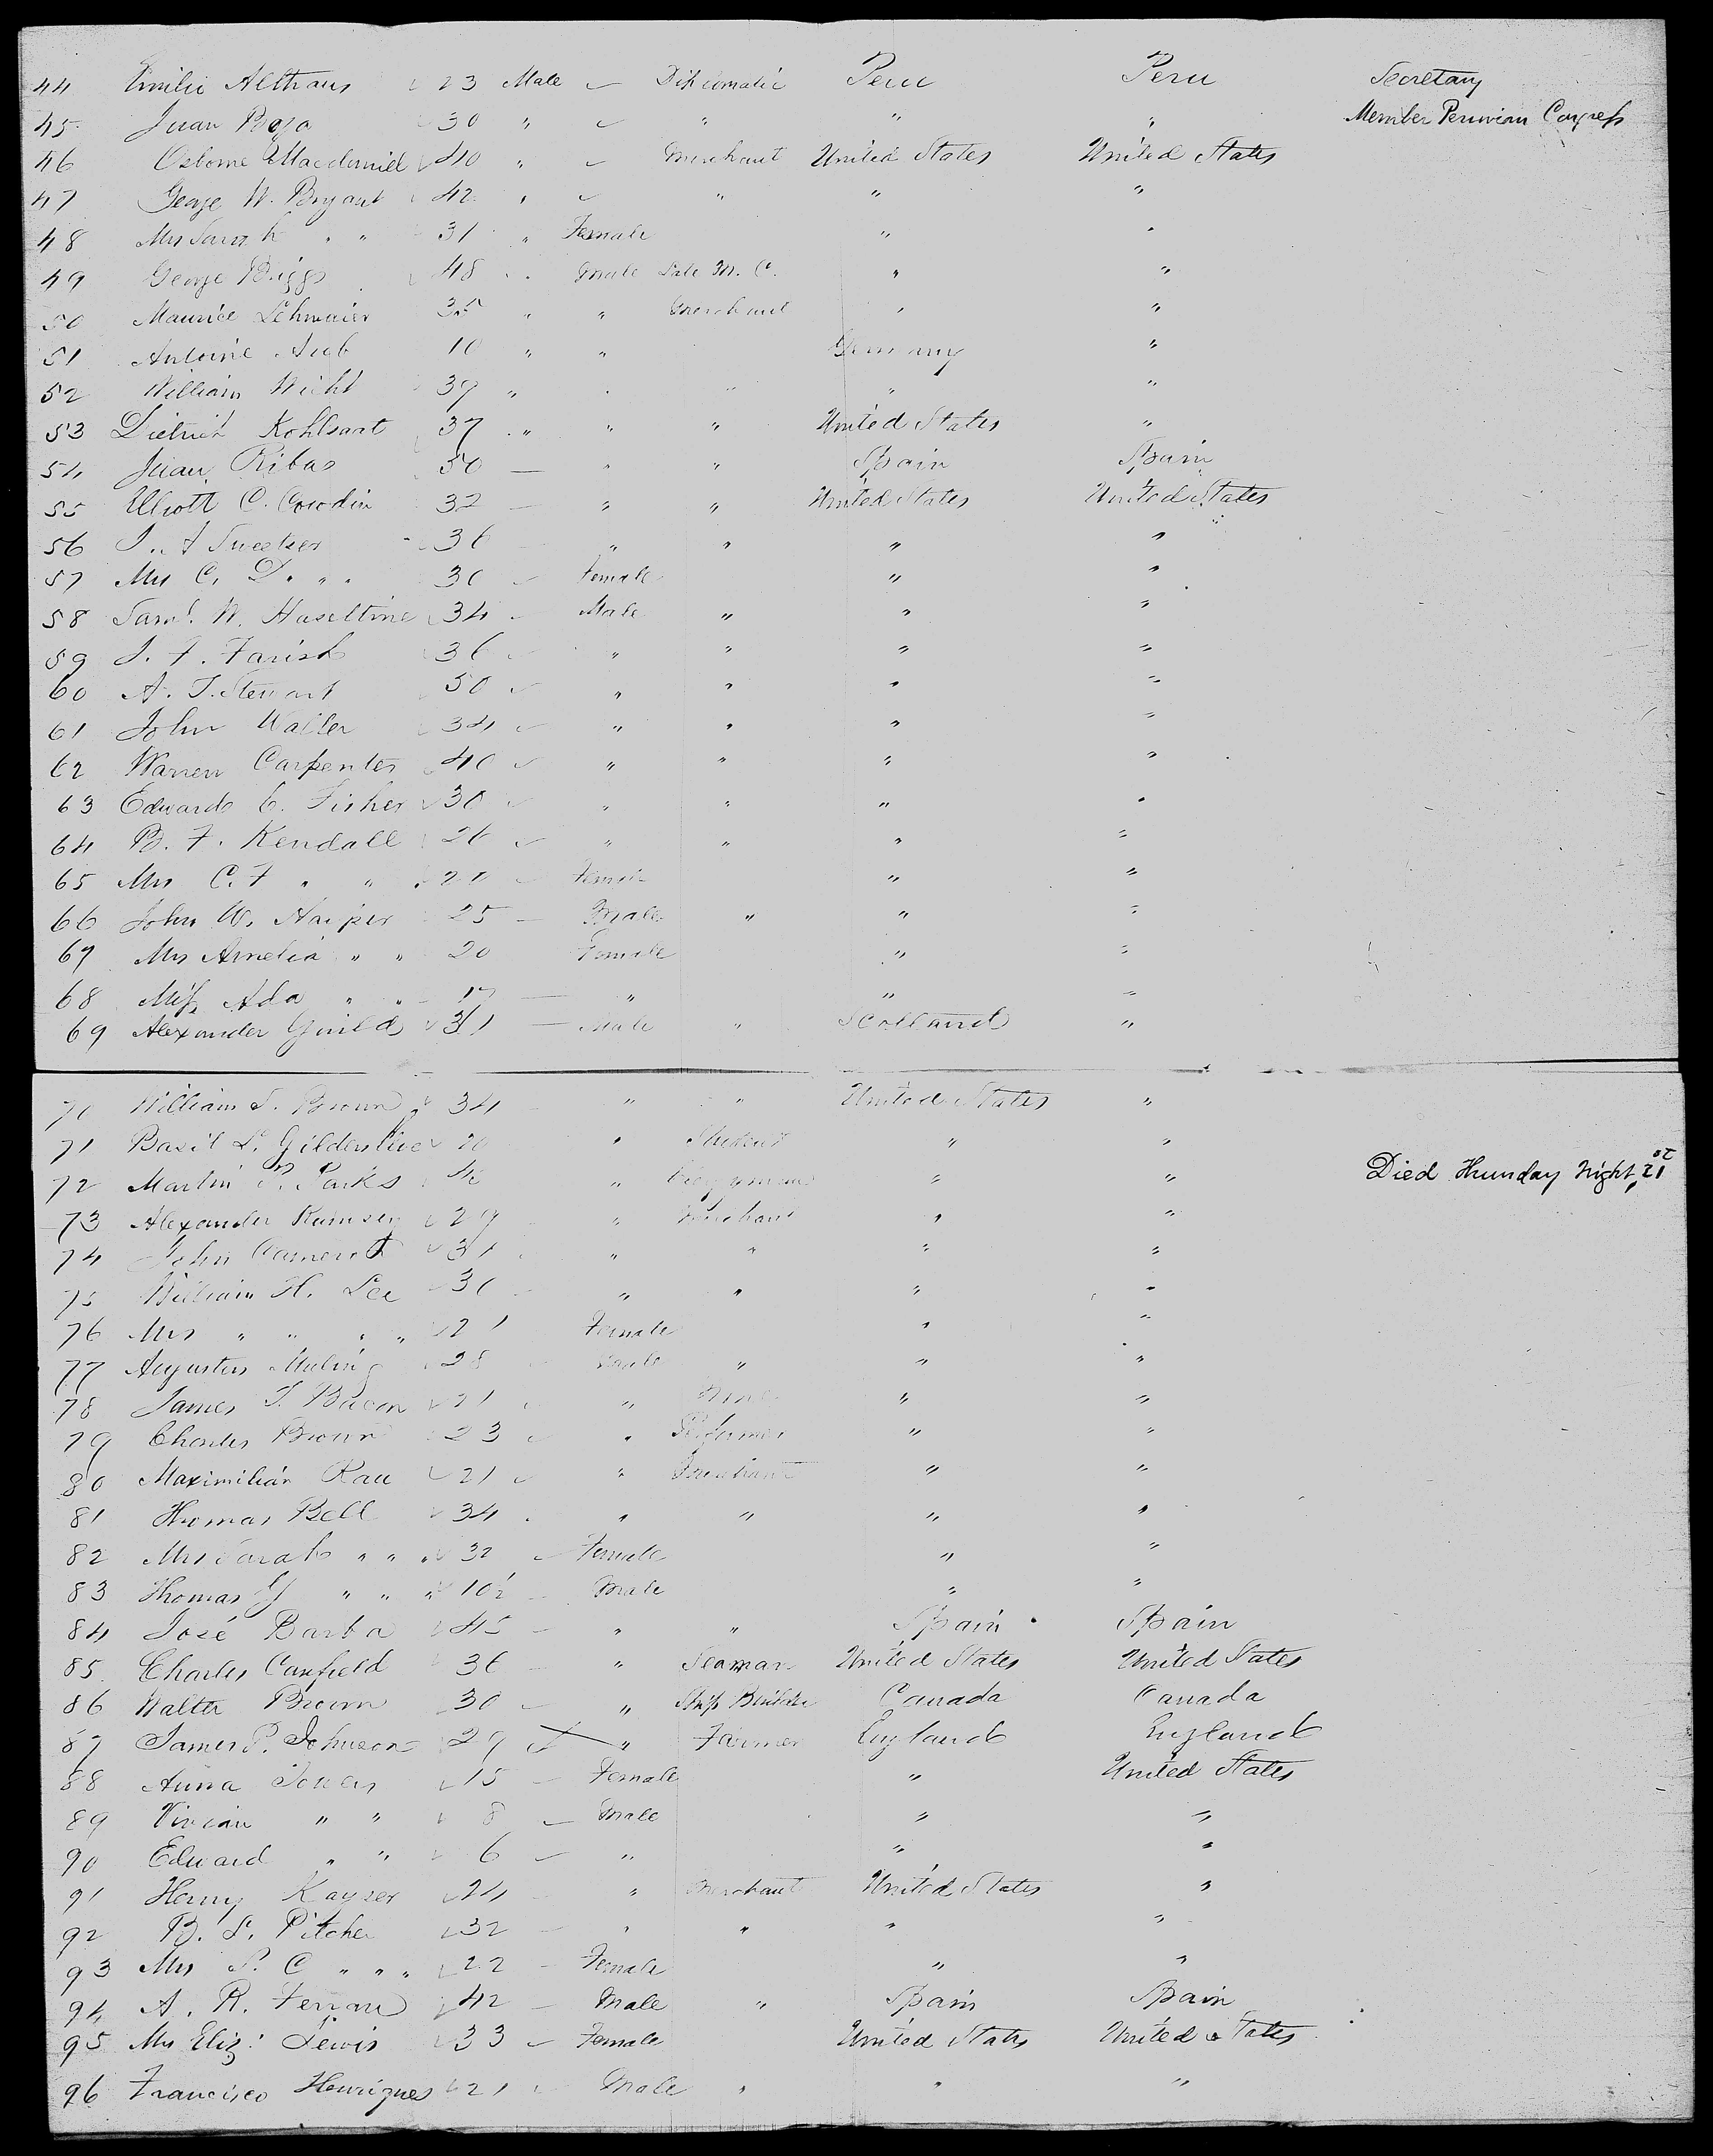 44 Emilie Althaus 23 Male Diplomatic Peru Peru Secretary
45 Juan Beza 30 " " " " Member Peruvian Congress
46 Osborne Macdaniel 40 " Merchant United States United States
47 George W. Bryant 42 " " " "
48 Mrs Sarah " " 31 " Female " "
49 George Briggs 48 " Male Late M. C. " "
50 Maurice Lehmaier 35 " " Merchant " "
51 Antoine 10 " " Germany "
52 William Wicht 39 " " " " "
53 Dietrich Kohlsaat 37 " " " United States "
54 Juan Ribas 50 — " " Spain Spain
55 Elliott C. Cowdin 32 — " " United States United States
56 J. A Sweetser 36 — " " " "
57 Mrs C. D. " " 30 Female " "
58 Saml. W. Haseltine 34 Male " " "
59 J. F. Farish 36 " " " "
60 A. T. Stewart 50 " " " "
61 John Waller 34 " " " "
62 Warren Carpenter 40 " " " "
63 Edward C. Fisher 30 " " " "
64 B. F. Kendall 26 " " " "
65 Mrs C. F " " 20 Female " "
66 John W. Harper 25 — Male " " "
67 Mrs Amelia " " 20 Female " "
68 Miss Ada " " 17 — " " "
69 Alexander Guild 31 — Male " Scotland "
70 William S. Brown 34 " " United States "
71 Basil L. Gildersleeve 20 " Student " "
72 Martin P. Parks " Clergyman " " Died Thursday Night, 21st
73 Alexander Ramsey 29 " Merchant " "
74 John Cameron 31 " " " "
75 William H. Lee 30 " " " "
76 Mrs " " " " 21 Female " "
77 Augustus Muling 28 Male " " "
78 James T. Bacon 21 " None " "
79 Charles Brown 23 " Perfumer " "
80 Maximilian Rau 21 " Merchant " "
81 Thomas Bell 34 " " " "
82 Mrs Sarah " " " 32 Female " "
83 Thomas G " " " 10½ Male " "
84 José Barba 45 — " " Spain Spain
85 Charles Canfield 36 — " Seaman United States United States
86 Walter Brown 30 — " Ship Builder Canada Canada
87 James P. Johnson 29 " Farmer England England
88 Anna Jones 15 — Female " United States
89 Vivian " " 8 — Male " "
90 Edward " " 6 " " "
91 Henry Kayser 24 — " Merchant United States "
92 B. L. Pitcher 32 — " " " "
93 Mrs S. C " " " 22 — Female " "
94 A. R. Ferran 42 — Male " Spain Spain
95 Mrs Eliz: Lewis 33 Female United States United States
96 Francisco Henriques 21 Male " " "